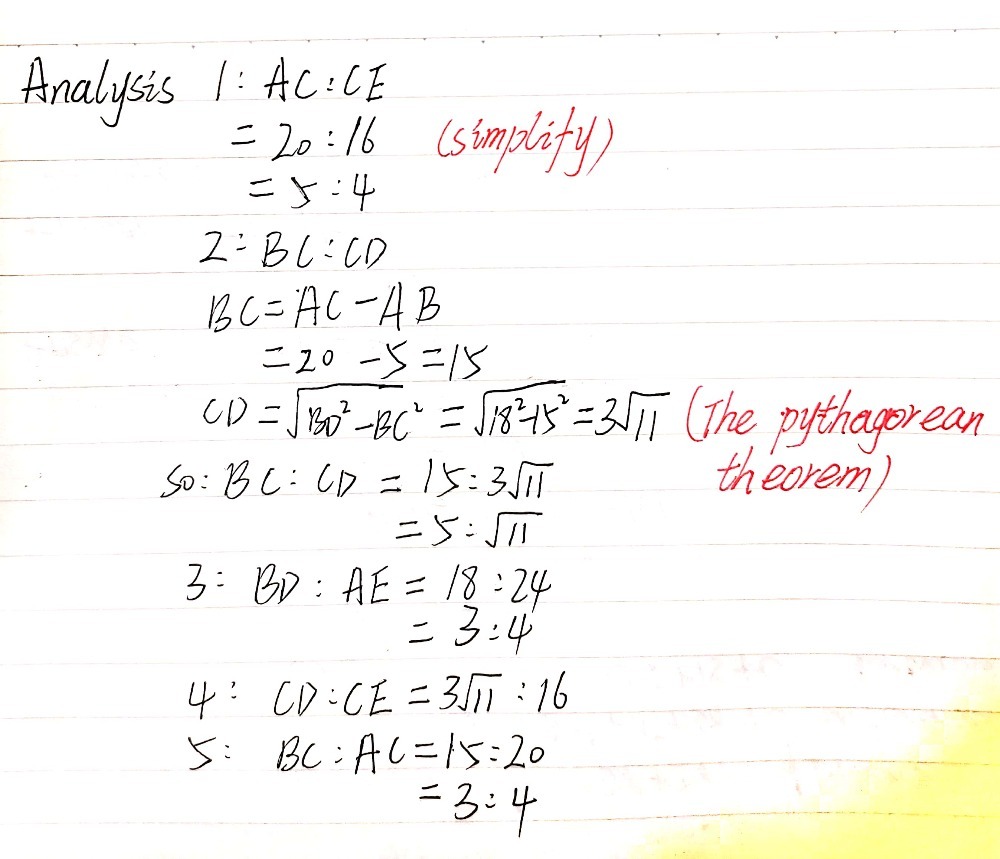 Analysis 1: AC:CE
= 20:16 (simplify)
= 5:4
2: BC:CD
BC = AC - AB
= 20 - 5 = 15
CD = √BD² - BC² = √18²-15² = 3√11 (The pythagorean
theorem)
so: BC: CD = 15:3√11
= 5:√11
3: BD: AE = 18:24
= 3:4
4: CD:CE = 3√11:16
5: BC:AC = 15:20
= 3:4